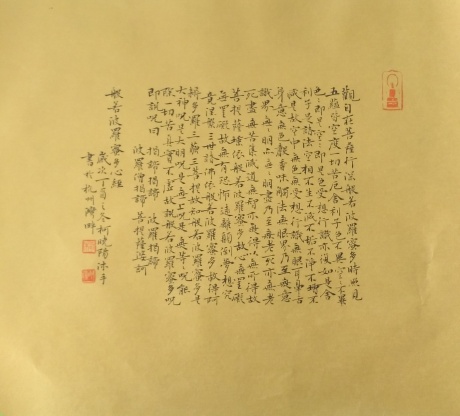 觀自在菩薩行深般若波羅蜜多時照見
五蘊皆空度一切苦厄舍利子色不異空空不異
色色即是空空即是色受想行識亦復如是舍
利子是諸法空相不生不滅不垢不淨不增不
減是故空中無色無受想行識無眼耳鼻舌
身意無色聲香味觸法無眼界乃至無意
識界無無明亦無無明盡乃至無老死亦無老
死盡無苦集滅道無智亦無得以無所得故
菩提薩埵依般若波羅蜜多故心無罣礙
無罣礙故無有恐怖遠離顛倒夢想究
竟涅槃三世諸佛依般若波羅蜜多故得阿
耨多羅三藐三菩提故知般若波羅蜜多是
大神呪是大明呪是無上呪是無等等呪能
除一切苦真實不虛故說般若波羅蜜多呪
即說呪曰 揭諦揭諦 波羅揭諦
波羅僧揭諦 菩提薩婆訶
般若波羅蜜多心經
歲次丁酉之春柯曉陽沐手
書於杭州